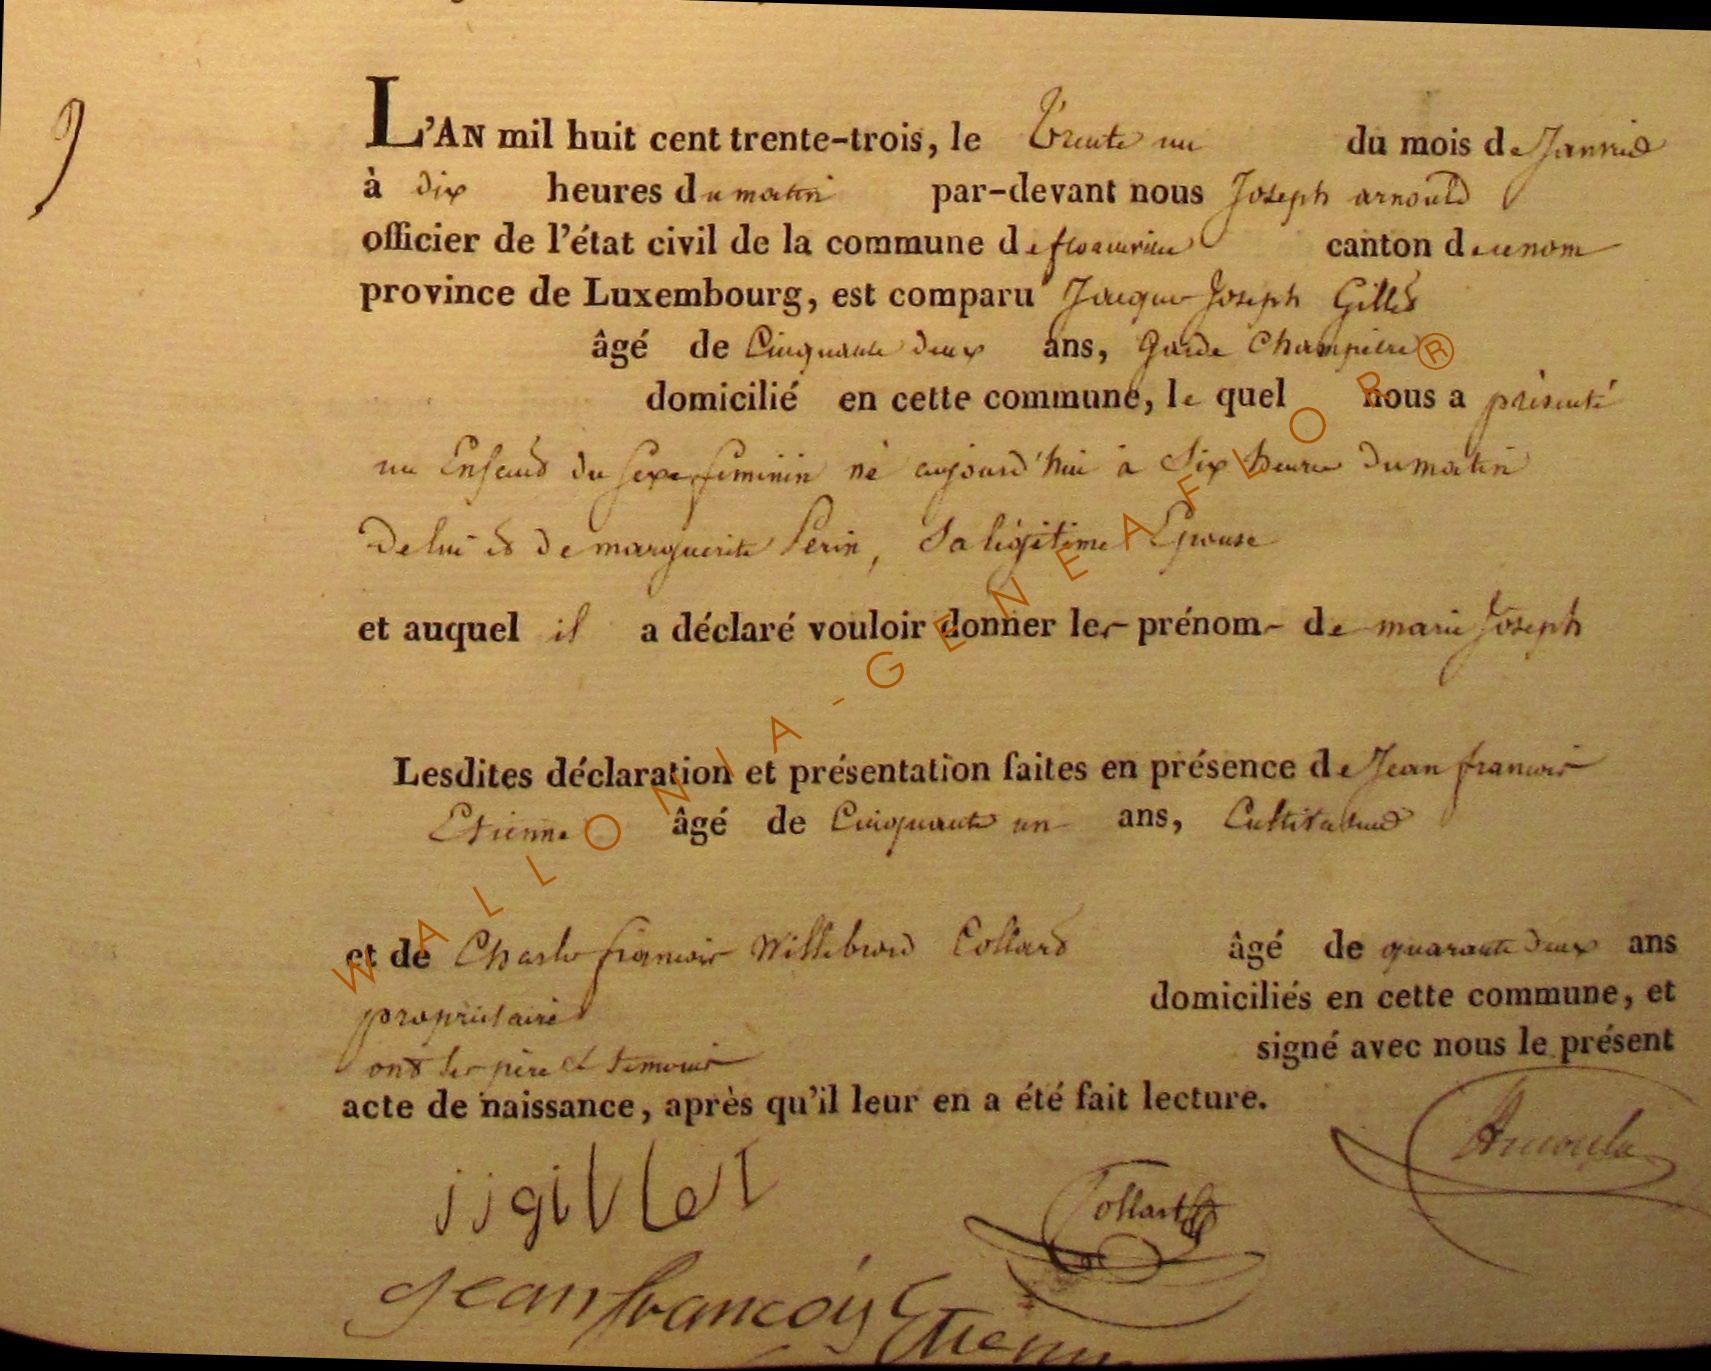 9
L'AN mil huit cent trente-trois, le Trente un du mois de Janvier
à dix heures du matin par-devant nous Joseph arnould
officier de l'état civil de la commune de canton de ce nom
province de Luxembourg, est comparu Jacques Joseph Gillet
âgé de Cinquante deux ans, Garde Champetre
domicilié en cette commune, le quel nous a présenté
un Enfand du sexe feminin né aujourd'hui à Six heures du matin
De lui et de marguerite Perin, Sa légitime Epouse
et auquel il a déclaré vouloir donner les prénoms de marie Joseph
Lesdites déclaration et présentation faites en présence de Jean francois
Etienne âgé de Cinquante un ans, Cultivateur
et de Charles francois Willebrord Collard âgé de quarante deux ans
propriétaire domiciliés en cette commune, et
ont les père et temoins signé avec nous le présent
acte de naissance, après qu'il leur en a été fait lecture.
jjgillet
Collart
Arnould
Jean francois Etienne
WALLONIA-GENEAFLOR®